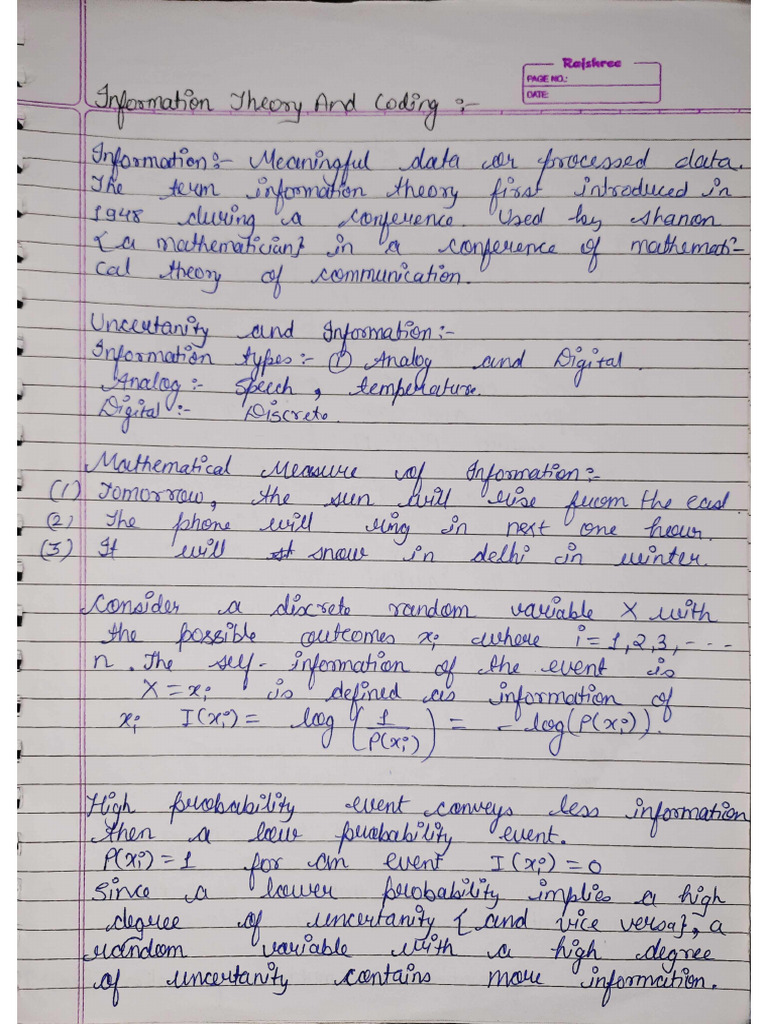 Rajshree
PAGE NO.:
DATE:
Information Theory And Coding :-
Information:- Meaningful data or processed data.
The term information theory first introduced in
1948 during a conference. Used by shanon
{a mathematician} in a conference of mathemati-
cal theory of communication.
Uncertanity and Information:-
Information types:- ① Analog and Digital.
Analog:- speech, temperature.
Digital:- Discrete.
Mathematical Measure of Information:-
(1) Tomorrow, the sun will rise from the east.
(2) The phone will ring in next one hour.
(3) It will snow in delhi in winter.
Consider a discrete random variable X with
the possible outcomes xi where i=1,2,3,----
n. The self-information of the event is
X=xi is defined as information of
xi I(xi) = log (1/P(xi)) = -log(P(xi)).
High probability event conveys less information
then a low probability event.
P(xi)=1 for an event I(xi)=0
Since a lower probability implies a high
degree of uncertanity {and vice versa}, a
random variable with a high degree
of uncertanity contains more information.